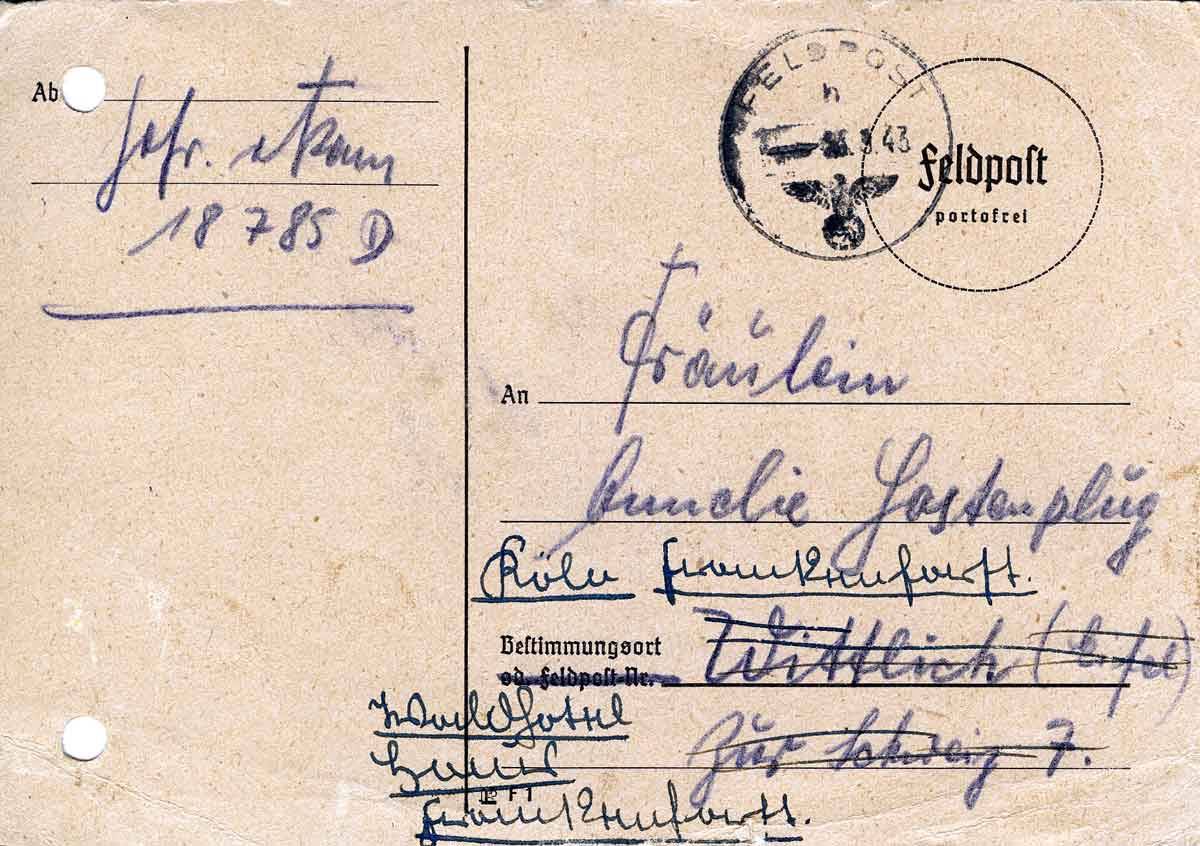 Ab
Gefr.
18 785 D
FELDPOST
h
3.43
Feldpost
portofrei
An
Fräulein
Annelie Hostenplug
Köln Frankenforst.
Bestimmungsort
od. Feldpost-Nr.
Wittlich (Eifel)
Zur Schweiz 7.
Waldhotel
Haus
F 1
Frankenforst.